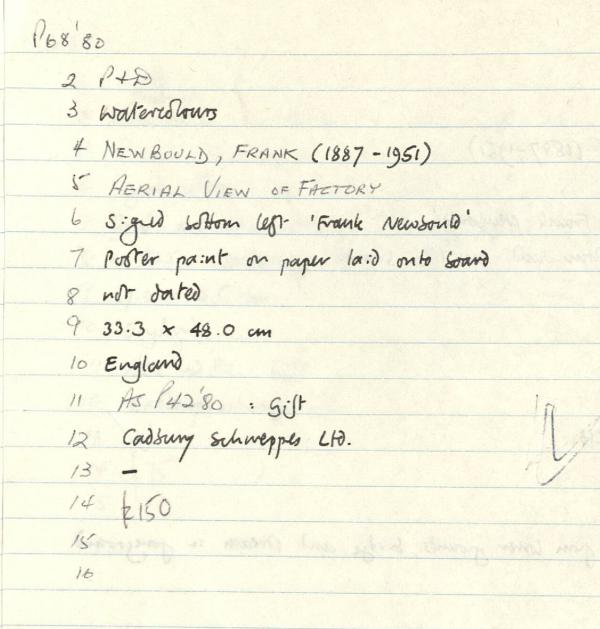 P68'80
2 P+D
3 Watercolours
4 NEWBOULD, FRANK (1887-1951)
5 AERIAL VIEW OF FACTORY
6 Signed bottom left 'Frank Newbould'
7 Poster paint on paper laid onto board
8 not dated
9 33.3 x 48.0 cm
10 England
11 AS P42'80 : Gift
12 Cadbury Schweppes Ltd.
13 –
14 £150
15
16